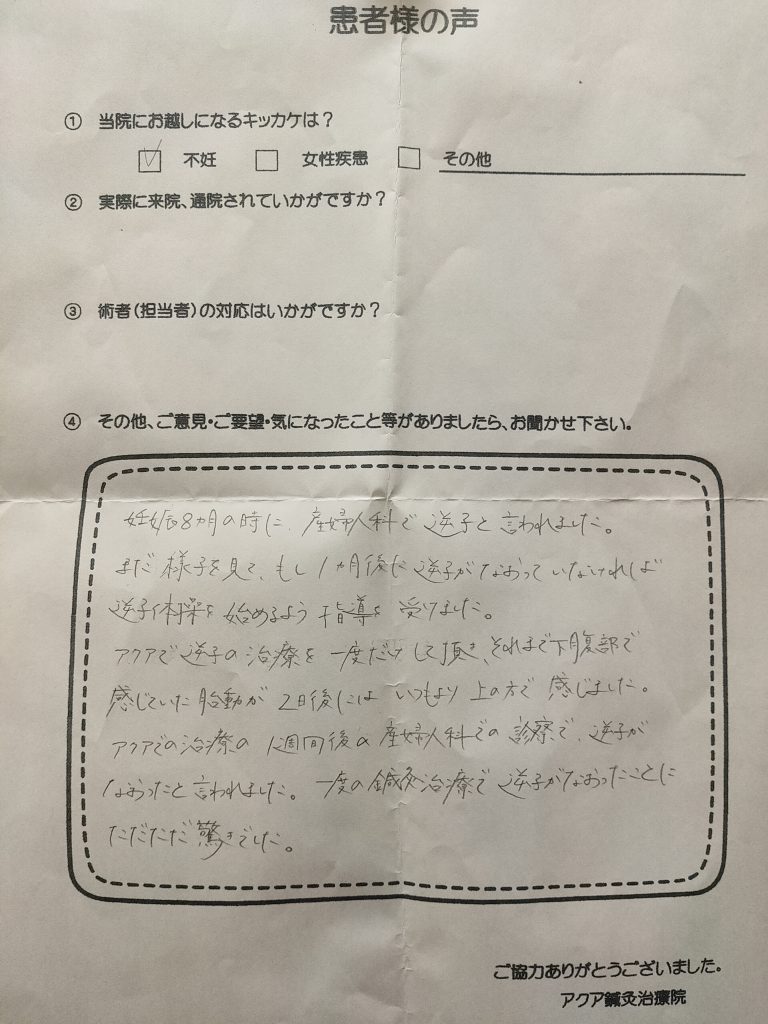 患者様の声
① 当院にお越しになるキッカケは？
☑ 不妊 □ 女性疾患 □ その他
② 実際に来院、通院されていかがですか？
③ 術者(担当者)の対応はいかがですか？
④ その他、ご意見・ご要望・気になったこと等がありましたら、お聞かせ下さい。
妊娠8ヵ月の時に、産婦人科で逆子と言われました。
まだ様子を見て、もし1ヵ月後に逆子がなおっていなければ
逆子体操を始めるよう指導を受けました。
アクアで逆子の治療を一度だけして頂き、それまで下腹部で
感じていた胎動が2日後にはいつもより上の方で感じました。
アクアでの治療の1週間後の産婦人科での診察で、逆子が
なおったと言われました。一度の鍼灸治療で逆子がなおったことに
ただただ驚きでした。
ご協力ありがとうございました。
アクア鍼灸治療院